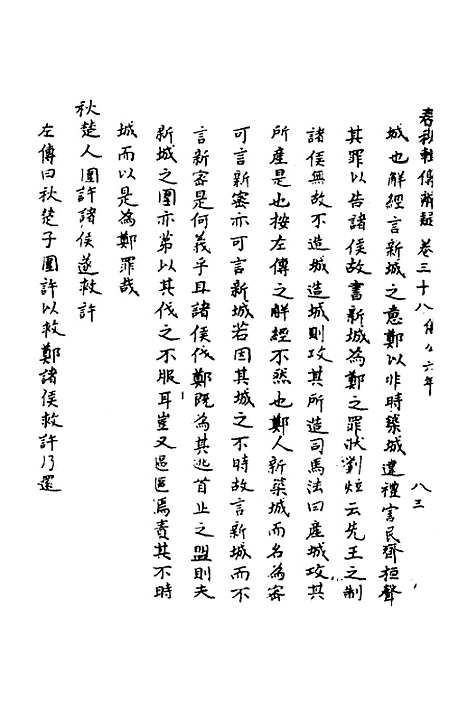 春秋輯傳辨疑 卷三十八 僖公六年 八三
城也解經言新城之意鄭以非時築城違禮害民齊桓聲
其罪以告諸侯故書新城為鄭之罪狀劉炫云先王之制
諸侯無故不造城造城則攻其所造司馬法曰產城攻其
所產是也按左傳之解經不然也鄭人新築城而名為密
可言新密亦可言新城若因其城之不時故言新城而不
言新密是何義乎且諸侯伐鄭既為其逃首止之盟則夫
新城之圍亦第以其伐之不服耳豈又區區焉責其不時
城而以是為鄭罪哉
秋楚人圍許諸侯遂救許
左傳曰秋楚子圍許以救鄭諸侯救許乃還